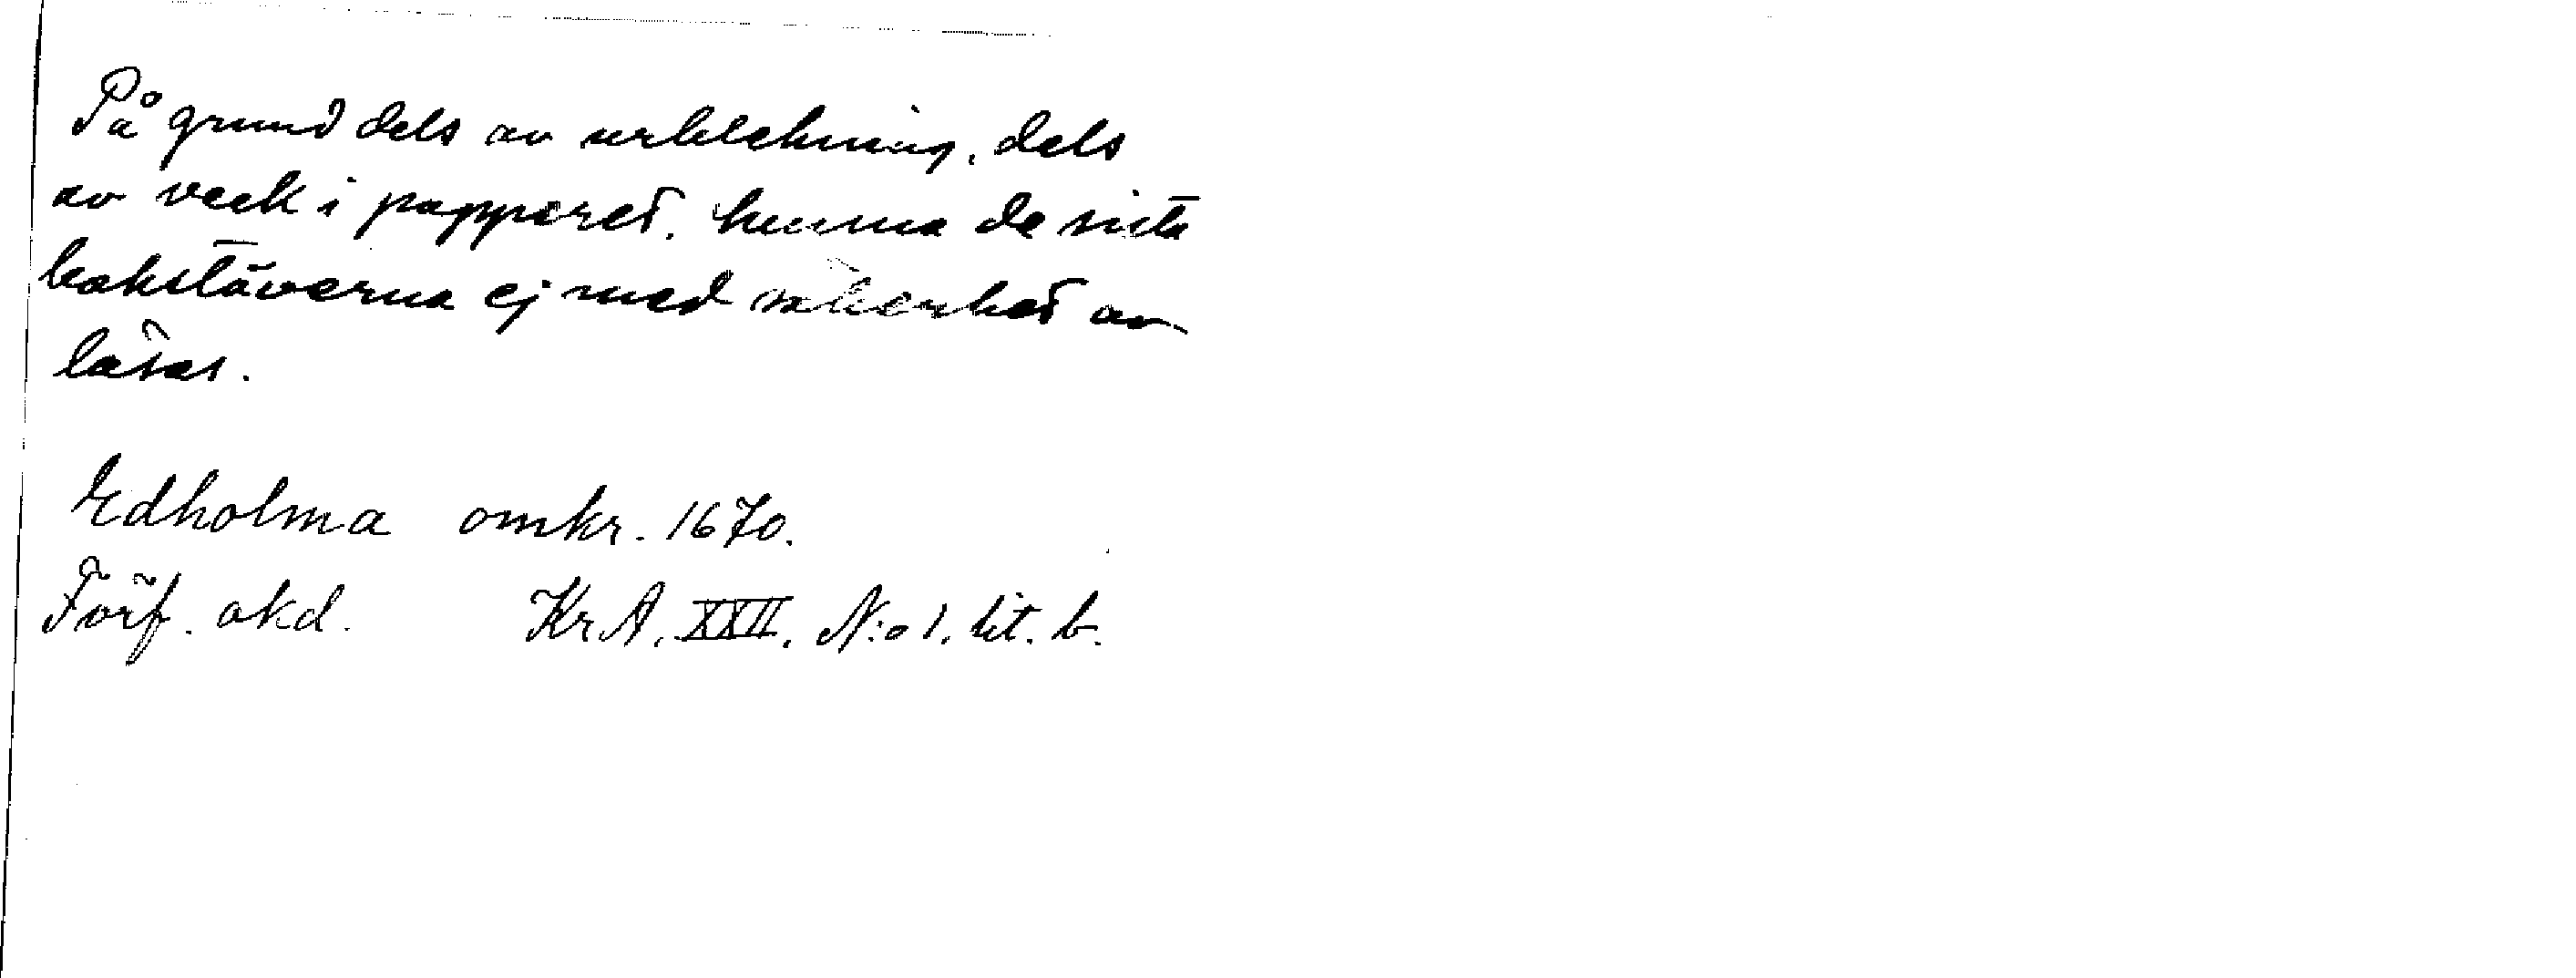 På grund dels av urblekning, dels
av veck i papperet, kunna de sista
bokstäverna ej med säkerhet av
läsas.
Edholma omkr. 1670.
Förf. okd. KrA. XXII. N:o 1. lit. b.